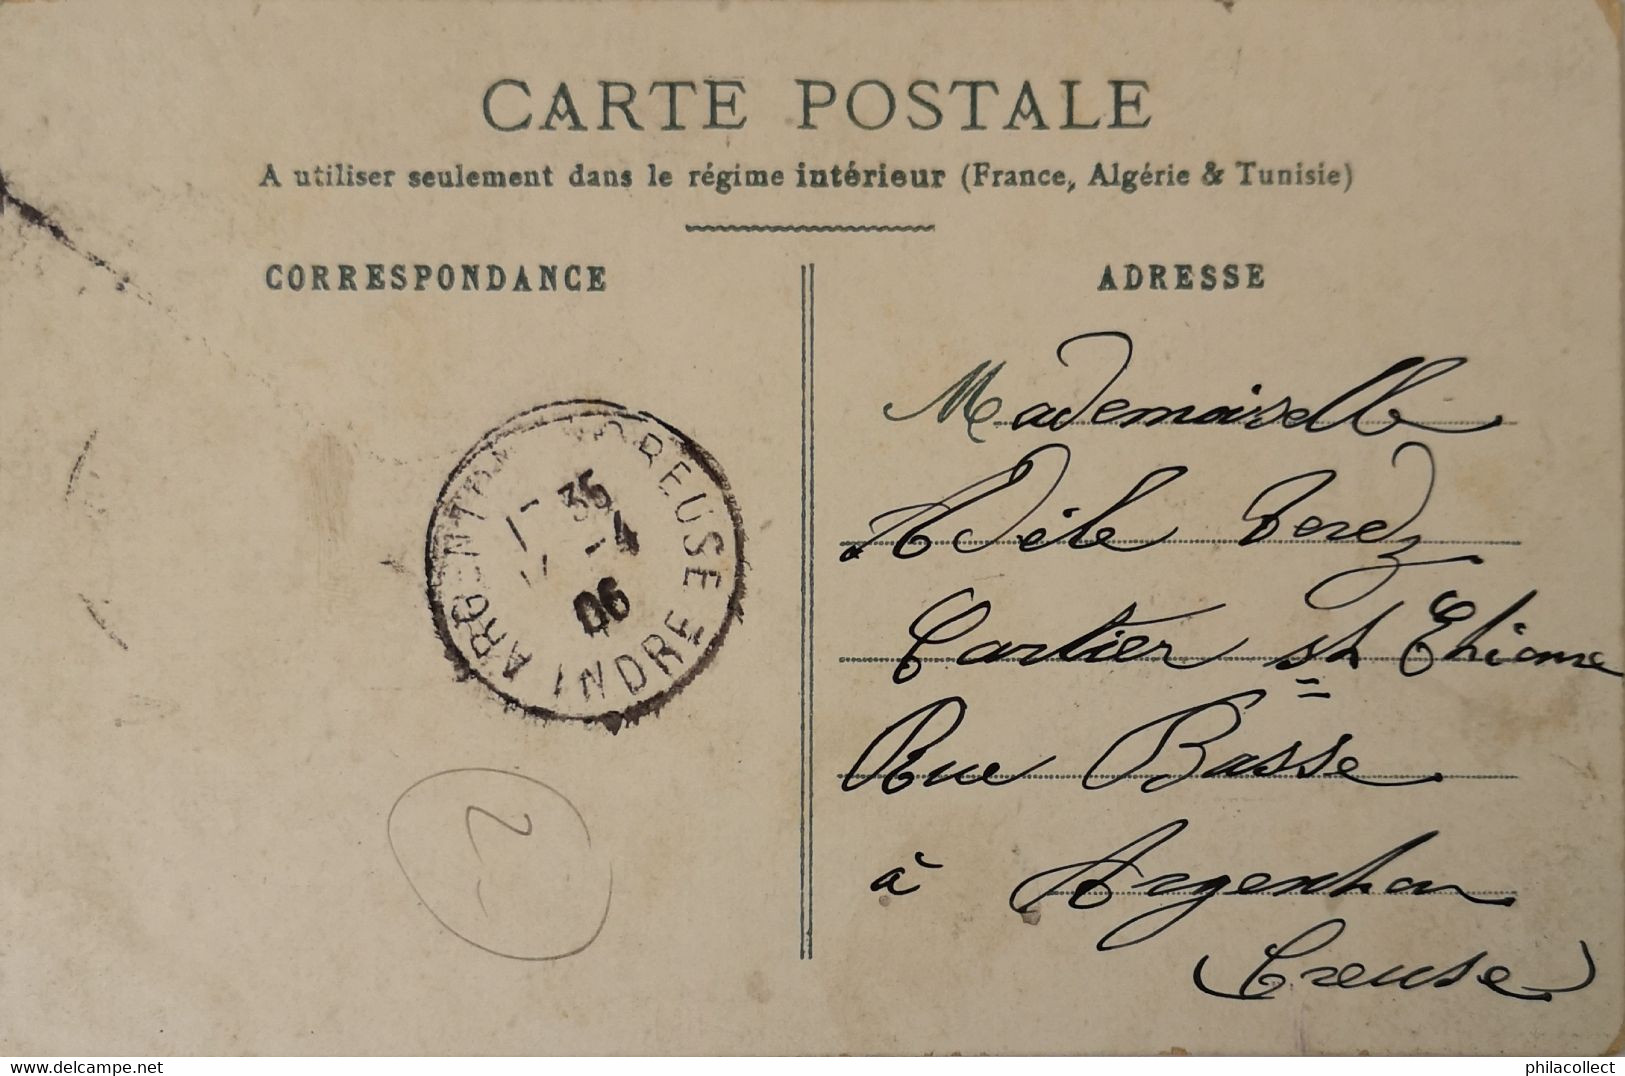 CARTE POSTALE
A utiliser seulement dans le régime intérieur (France, Algérie & Tunisie)
CORRESPONDANCE
ADRESSE
Mademoiselle
Adèle Perez
Cartier st Etienne
Rue Basse
à Argenton
(Creuse)
ARGENTON CREUSE
35
-4
06
INDRE
2-
delcampe.net
philacollect